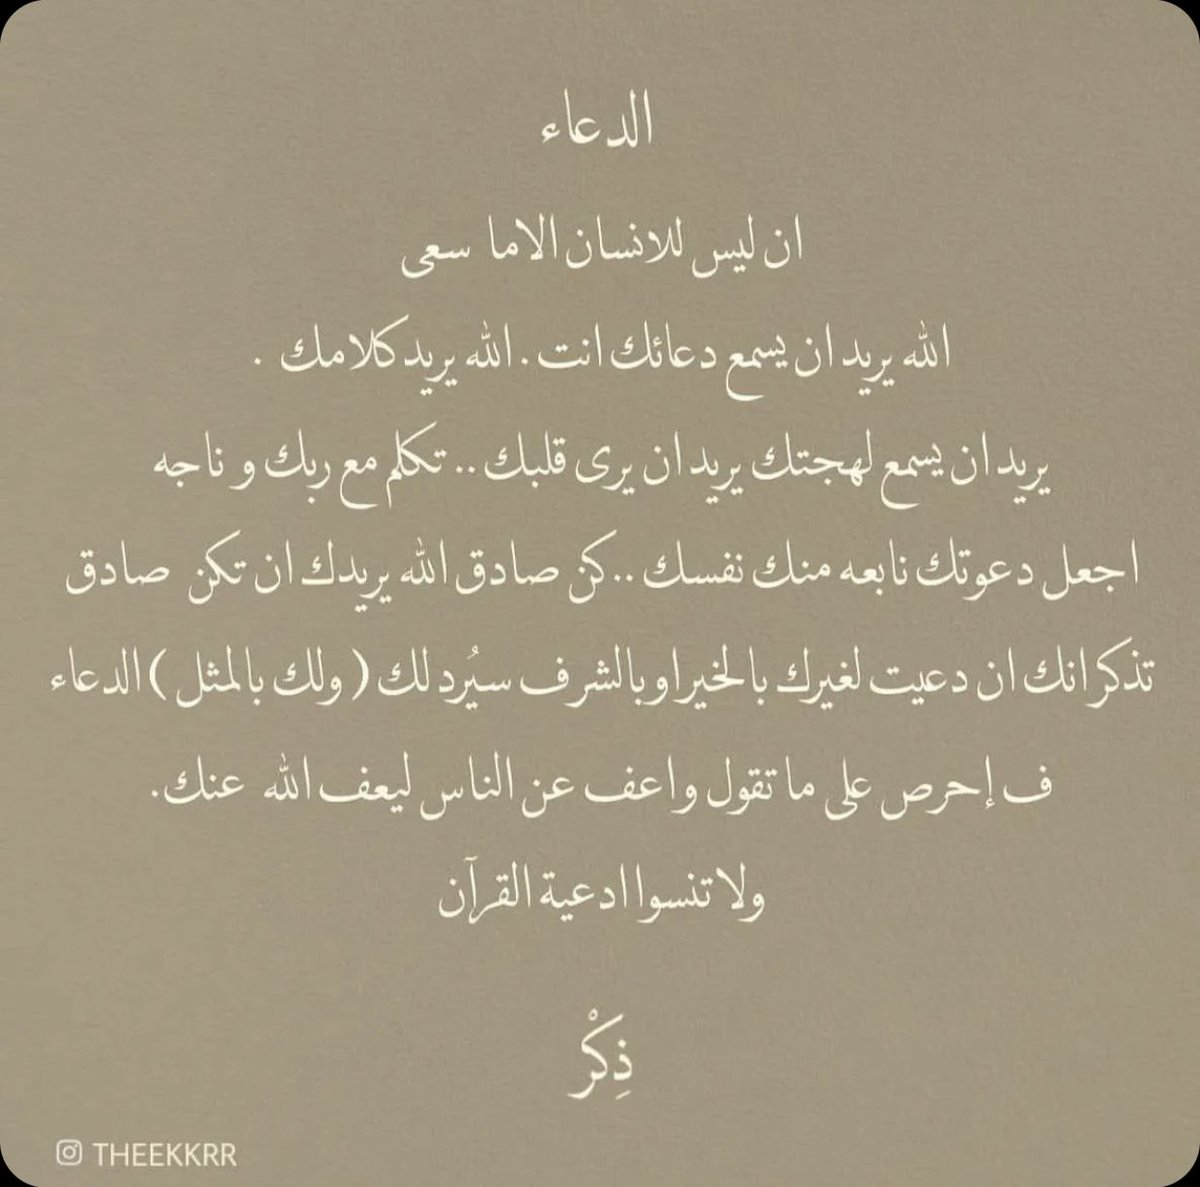 الدعاء
ان ليس للانسان الا ما سعى
الله يريد ان يسمع دعائك انت . الله يريد كلامك .
يريد ان يسمع لهجتك يريد ان يرى قلبك .. تكلم مع ربك و ناجه
اجعل دعوتك نابعه منك نفسك .. كن صادق الله يريدك ان تكن صادق
تذكر انك ان دعيت لغيرك بالخير او بالشر ف سيُرد لك ( ولك بالمثل ) الدعاء
ف إحرص على ما تقول واعف عن الناس ليعف الله عنك.
ولا تنسوا ادعية القرآن
ذِكْر
THEEKKRR